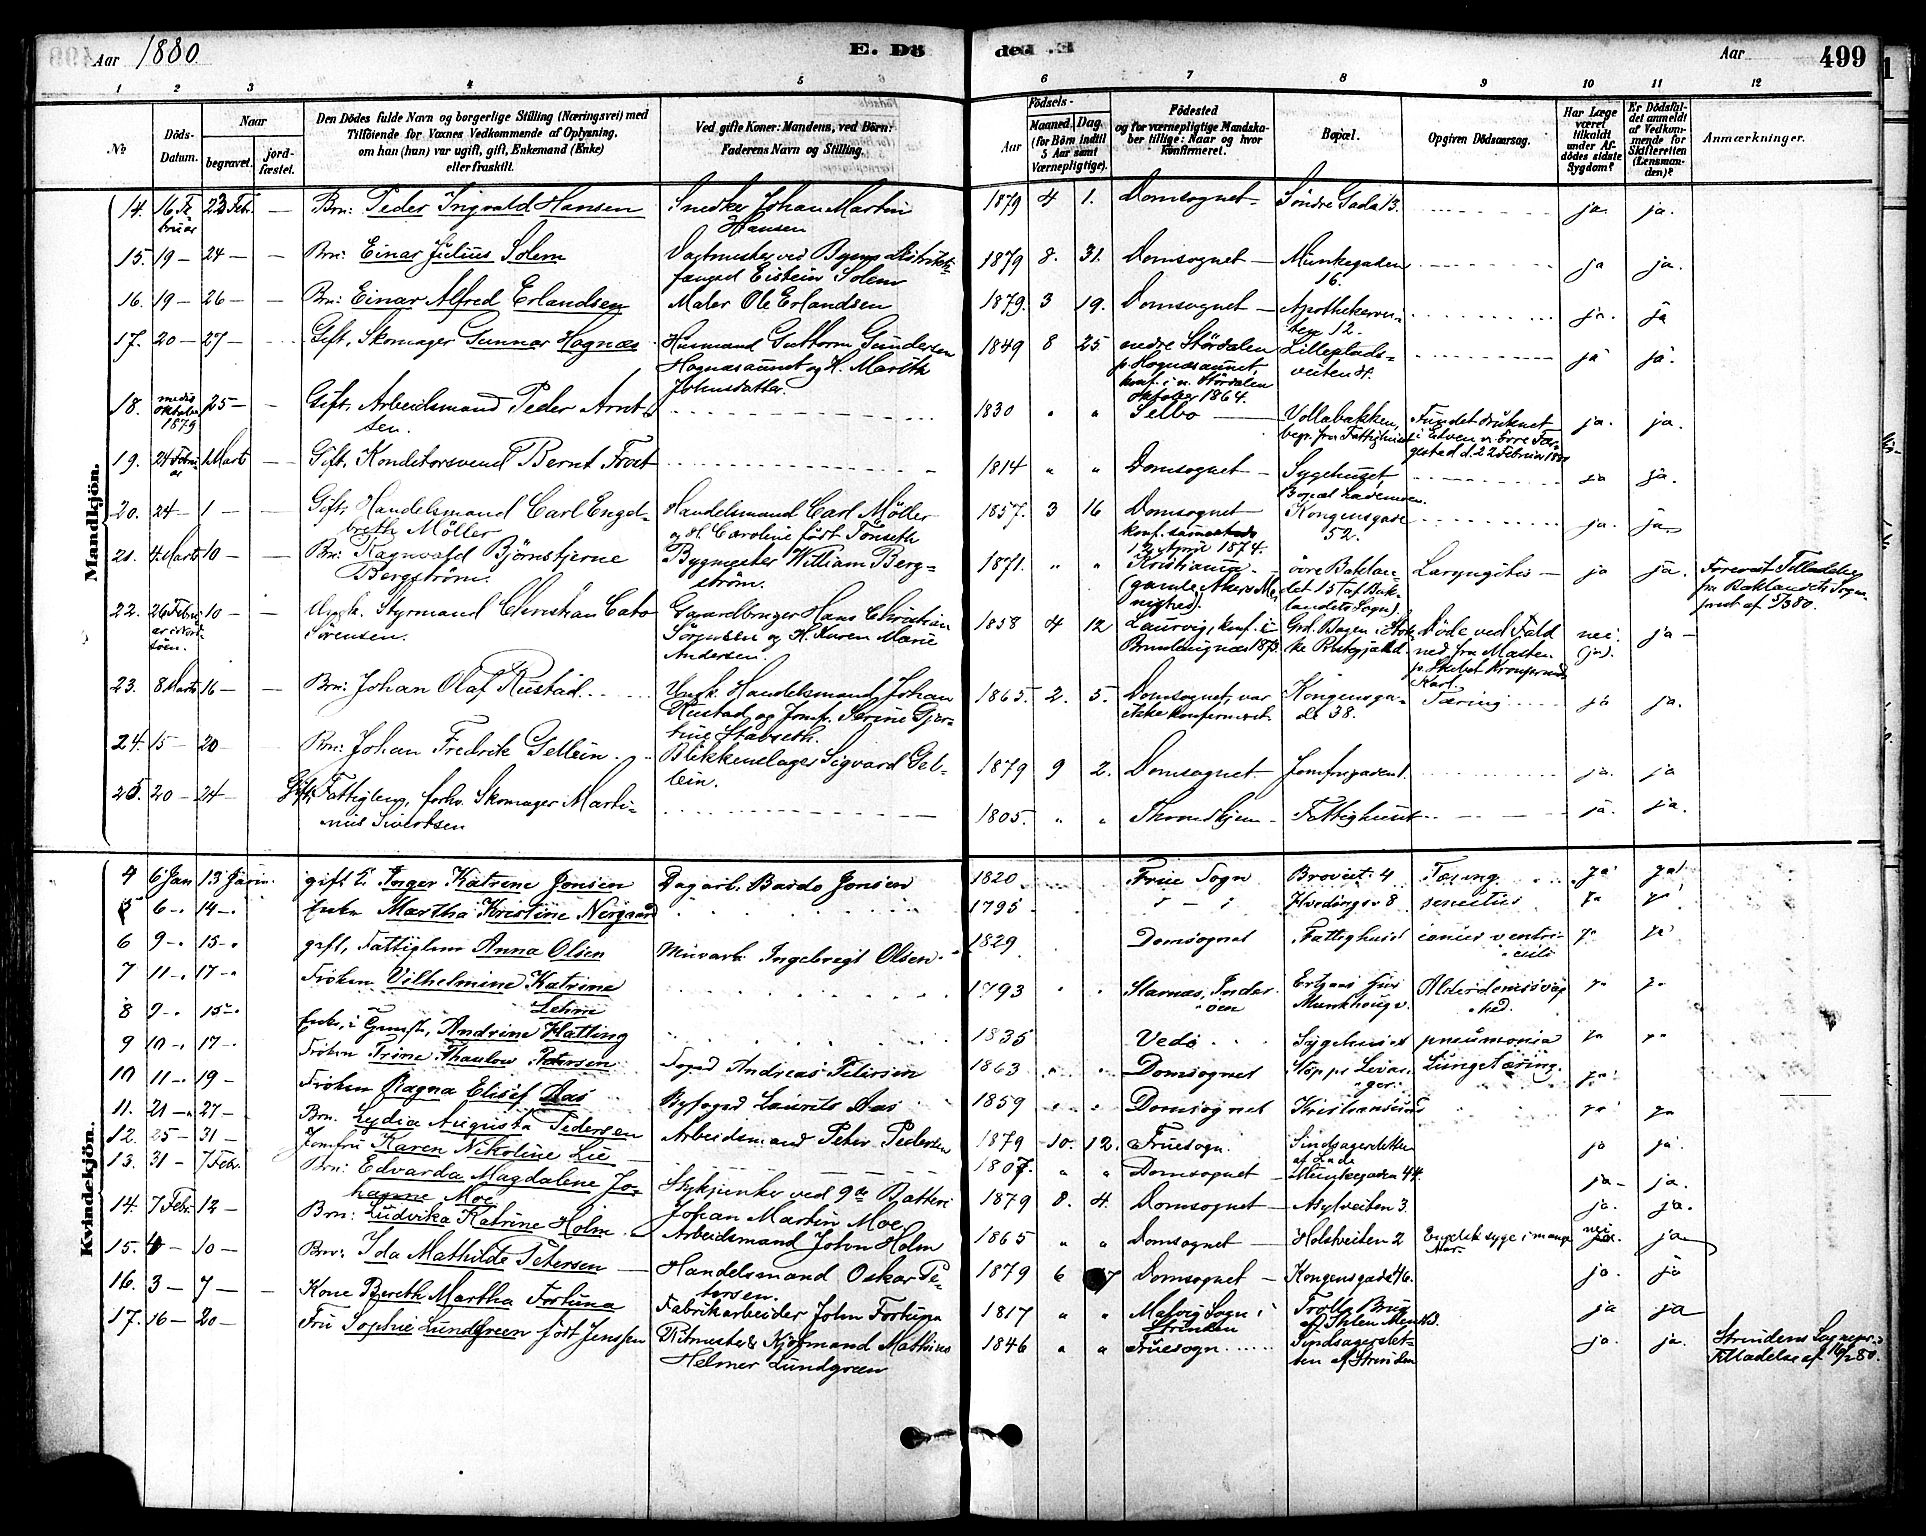 Aar 1880.
E. Dö
den .E
Aar 499
1 2 3 4 5 6 7 8 9 10 11 12
№
Döds-Datum.
Naar
begravet.
jord-fæstet.
Den Dödes fulde Navn og borgerlige Stilling (Næringsvei) med
Tilföiende for Voxnes Vedkommende af Oplysning,
om han (hun) var ugift, gift, Enkemand (Enke)
eller fraskilt.
Ved gifte Koner: Mandens, ved Börn:
Faderens Navn og Stilling.
Födsels-
Aar
Maaned. Dag.
(for Börn indtil
5 Aar samt
Værnepligtige).
Födested
og for værnepligtige Mandska-
ber tillige: Naar og hvor
konfirmeret.
Bopæl.
Opgiven Dödsaarsag.
Har Læge
været
tilkaldt
under Af-
dödes sidste
Sygdom?
Er Dödsfal-
det anmeldt
af Vedkom-
mende for
Skifteretten
(Lensman-
den)?
Anmærkninger.
Mandkjön.
14. 16 Februar 23 Febr. — Brn: Peder Ingvald Hansen Snedker Johan Martin Hansen 1879 4 1. Domsognet Söndre Gade 13. ja. ja.
15. 19 — 24 — — Brn: Einar Julius Solem Vagtmester ved Byens Distrikts-fængsel Eistein Solem 1879 8. 31. Domsognet — Munkegaden 16. ja ja.
16. 19 — 26 — — Brn: Einar Alfred Erlandsen Maler Ole Erlandsen 1879. 3 19. Domsognet — Apothekervei-ten 12. ja. ja
17. 20 — 27 — — Gift, Skomager Gunnar Hognæs Husmand Guttorm Gundersen Hognæsaunet og H. Marith Johnsdatter. 1849 8 25 nedre Stördalen p. Hognæsaunet, konf. i n. Stördalen Oktober 1864. Lilleplads-veiten ja ja.
18. medio Oktober 1879 25 — — Gift, Arbeidsmand Peder Arnt-sen. 1830 " " Selbo — Vollabakken, begr. fra Fattighuset Fundet druknet i Elven v. övre Fær-gested d. 22 Februar 1880 ja. ja.
19. 24 Februar 1 Marts — Gift, Konditorsvend Bernt Frost 1814 " " Domsognet — Sygehuset, Bopæl Lademoen. ja ja.
20. 24 — 1 — — Gift, Handelsmand Carl Engel-breth Möller Handelsmand Carl Möller og H. Caroline födt Tönseth 1857. 3 16 Domsognet konf. sammesteds 12 April 1874. Kongensgade 52. ja. ja
21. 4 Marts 10 — — Brn: Ragnvald Björnstjerne Bergström. Bygmester William Berg-ström. 1871. " " Kristiania. (gamle Akers Me-nighed). övre Baklan-det 15 (af Bak-landets Sogn). Laryngitis — ja ja. Forevist Tilladelse fra Baklandets Sogne-prest af 5/3 80.
22. 26 Februar i Nord-söen. 10 — — Ungk. Styrmand Christian Cato Sörensen. Gaardbruger Hans Christian Sörensen og H. Karen Marie Andersen. 1858 4 12 Laurvig, konf. i Brunlangnæs 1873. Grd. Bagen i Stok-ke Prestegjæld. Döde ved Fald ned fra Masten p. Skibet Kronprinds Karl nei. (ja). ja —
23. 8 Marts 16 — — Brn: Johan Olaf Rustad. Ungk. Handelsmand Johan Rustad og Jomf. Serine Gjer-tine Stavseth. 1865. 2. 5. Domsognet, var ikke konfirmeret. Kongensga-de 38. Tæring ja ja.
24. 15 — 20 — Brn: Johan Fredrik Gellein. Blikkenslager Sigvard Gel-lein. 1879 9 2. Domsognet. Jomfrugaden 1. ja. ja
25. 20 — 24 — Gift, Fattiglem, forhv. Skomager Marti-nus Sivertsen 1805. " " Throndhjem — Fattighuset ja. ja.
Kvindekjön.
4 6 Jan 13 Janu. gift E. Inger Katrine Jonsen Dagarb. Bardo Jonsen 1820 Frue Sogn Broveit. 4 Tæring ja ja
5 6 — 14 — Enke Martha Kristine Nergaard 1795 Hvedingsv 8 senectus ja ja
6 9 — 15 — gift, Fattiglem Anna Olsen Murarb. Ingebrigt Olsen 1829 Domsognet Fattighuset ja ja
7 11 — 17 — Fröken Vilhelmine Katrine Lehm 1793 Munkhaugv. ja ja
8 9 — 15 — Enke, Andrine Hatling 1835 Vedö Sygehuset pneumonia ja ja
9 10 — 17 — Fröken Trine Thaulow Petersen Foged Andreas Petersen 1863 Domsognet Lungetæring. ja
10 11 — 19 — Fröken Ragna Elisef Aas Byfoged Laurits Aas 1859 Domsognet Kristiansund ja ja
11. 21 — 27 — Brn. Lydia Augusta Pedersen Arbeidsmand Peter Pedersen 1879 10. 12. Fruesogn. Sindsagersletten af Lade ja ja
12. 25 — 31 — Jomfru Karen Nikoline Lie 1807. " " Domsognet — Munkegaden 44. ja — ja.
13. 31 — 7 Febr. Brn: Edvarda Magdalene Jo-hanne Moe Stykjunker ved 9de Batteri Johan Martin Moe 1879 8. 4. Domsognet — Asylveiten 3. ja. ja.
14. 7 Febr. 12 — Brn: Ludvika Katrine Holm Arbeidsmand John Holm 1865 " " Domsognet — Holstveiten 2 Engelsk syge i mange Aar. nei ja
15. 4 — 10 — Brn: Ida Mathilde Petersen Handelsmand Oskar Pe-tersen. 1879 6 7 Domsognet — Kongensgade 46. ja. ja
16. 3 — 7 — — Kone Bereth Martha Fortuna Fabrikarbeider John Fortuna 1817 " " Malvig Sogn i Strinden Trolla Brug af Ihlen Menhd. ja ja
17. 16 — 20 — Fru Sophie Lundgreen födt Jenssen Ritmester & Kjöbmand Mathias Helmer Lundgreen 1846 " " Fruesogn Sindsagerslet-ten af Strinden ja. ja. Strindens Sognepr. Tilladelse af 16/2 80.